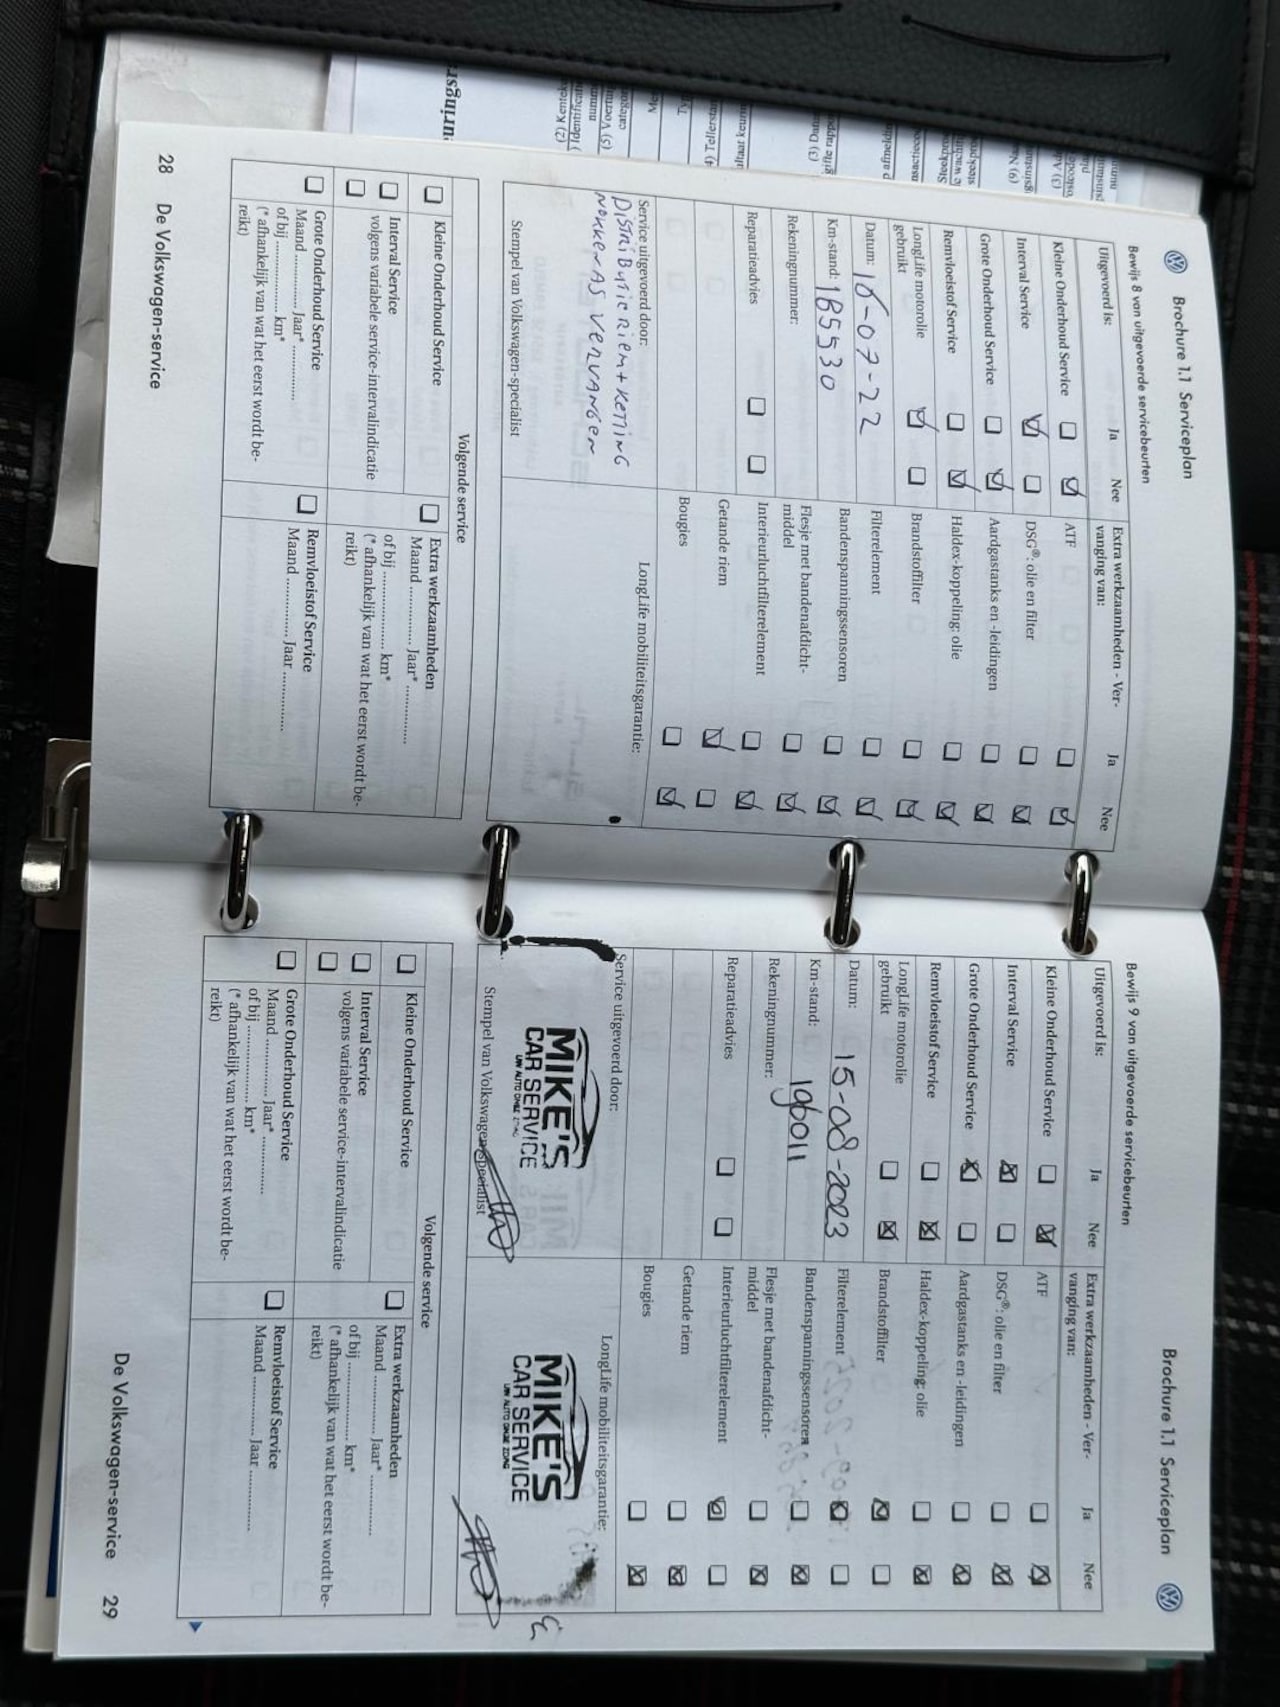 Brochure 1.1 Serviceplan
Bewijs 8 van uitgevoerde servicebeurten
Uitgevoerd is: Ja Nee
Kleine Onderhoud Service
Interval Service
Grote Onderhoud Service
Remvloeistof Service
LongLife motorolie
gebruikt
Datum: 16-07-22
Km-stand: 185530
Rekeningnummer:
Reparatieadvies
Extra werkzaamheden - Ver-
vanging van: Ja Nee
ATF
DSG®: olie en filter
Aardgastanks en -leidingen
Haldex-koppeling: olie
Brandstoffilter
Filterelement
Bandenspanningssensoren
Flesje met bandenafdicht-
middel
Interieurluchtfilterelement
Getande riem
Bougies
Service uitgevoerd door:
Distributie riem + ketting
nokkenas vervangen
Stempel van Volkswagen-specialist
LongLife mobiliteitsgarantie:
Volgende service
Kleine Onderhoud Service
Interval Service
volgens variabele service-intervalindicatie
Grote Onderhoud Service
Maand ............ Jaar* ............
of bij ............ km*
(* afhankelijk van wat het eerst wordt be-
reikt)
Extra werkzaamheden
Maand ............ Jaar* ............
of bij ............ km*
(* afhankelijk van wat het eerst wordt be-
reikt)
Remvloeistof Service
Maand ............ Jaar ............
28 De Volkswagen-service
Brochure 1.1 Serviceplan
Bewijs 9 van uitgevoerde servicebeurten
Uitgevoerd is: Ja Nee
Kleine Onderhoud Service
Interval Service
Grote Onderhoud Service
Remvloeistof Service
LongLife motorolie
gebruikt
Datum: 15-08-2023
Km-stand: 196011
Rekeningnummer:
Reparatieadvies
Extra werkzaamheden - Ver-
vanging van: Ja Nee
ATF
DSG®: olie en filter
Aardgastanks en -leidingen
Haldex-koppeling: olie
Brandstoffilter
Filterelement
Bandenspanningssensoren
Flesje met bandenafdicht-
middel
Interieurluchtfilterelement
Getande riem
Bougies
Service uitgevoerd door:
MIKE'S
CAR SERVICE
UW AUTO ONZE ZORG
Stempel van Volkswagen-specialist
LongLife mobiliteitsgarantie:
MIKE'S
CAR SERVICE
UW AUTO ONZE ZORG
Volgende service
Kleine Onderhoud Service
Interval Service
volgens variabele service-intervalindicatie
Grote Onderhoud Service
Maand ............ Jaar* ............
of bij ............ km*
(* afhankelijk van wat het eerst wordt be-
reikt)
Extra werkzaamheden
Maand ............ Jaar* ............
of bij ............ km*
(* afhankelijk van wat het eerst wordt be-
reikt)
Remvloeistof Service
Maand ............ Jaar ............
De Volkswagen-service 29